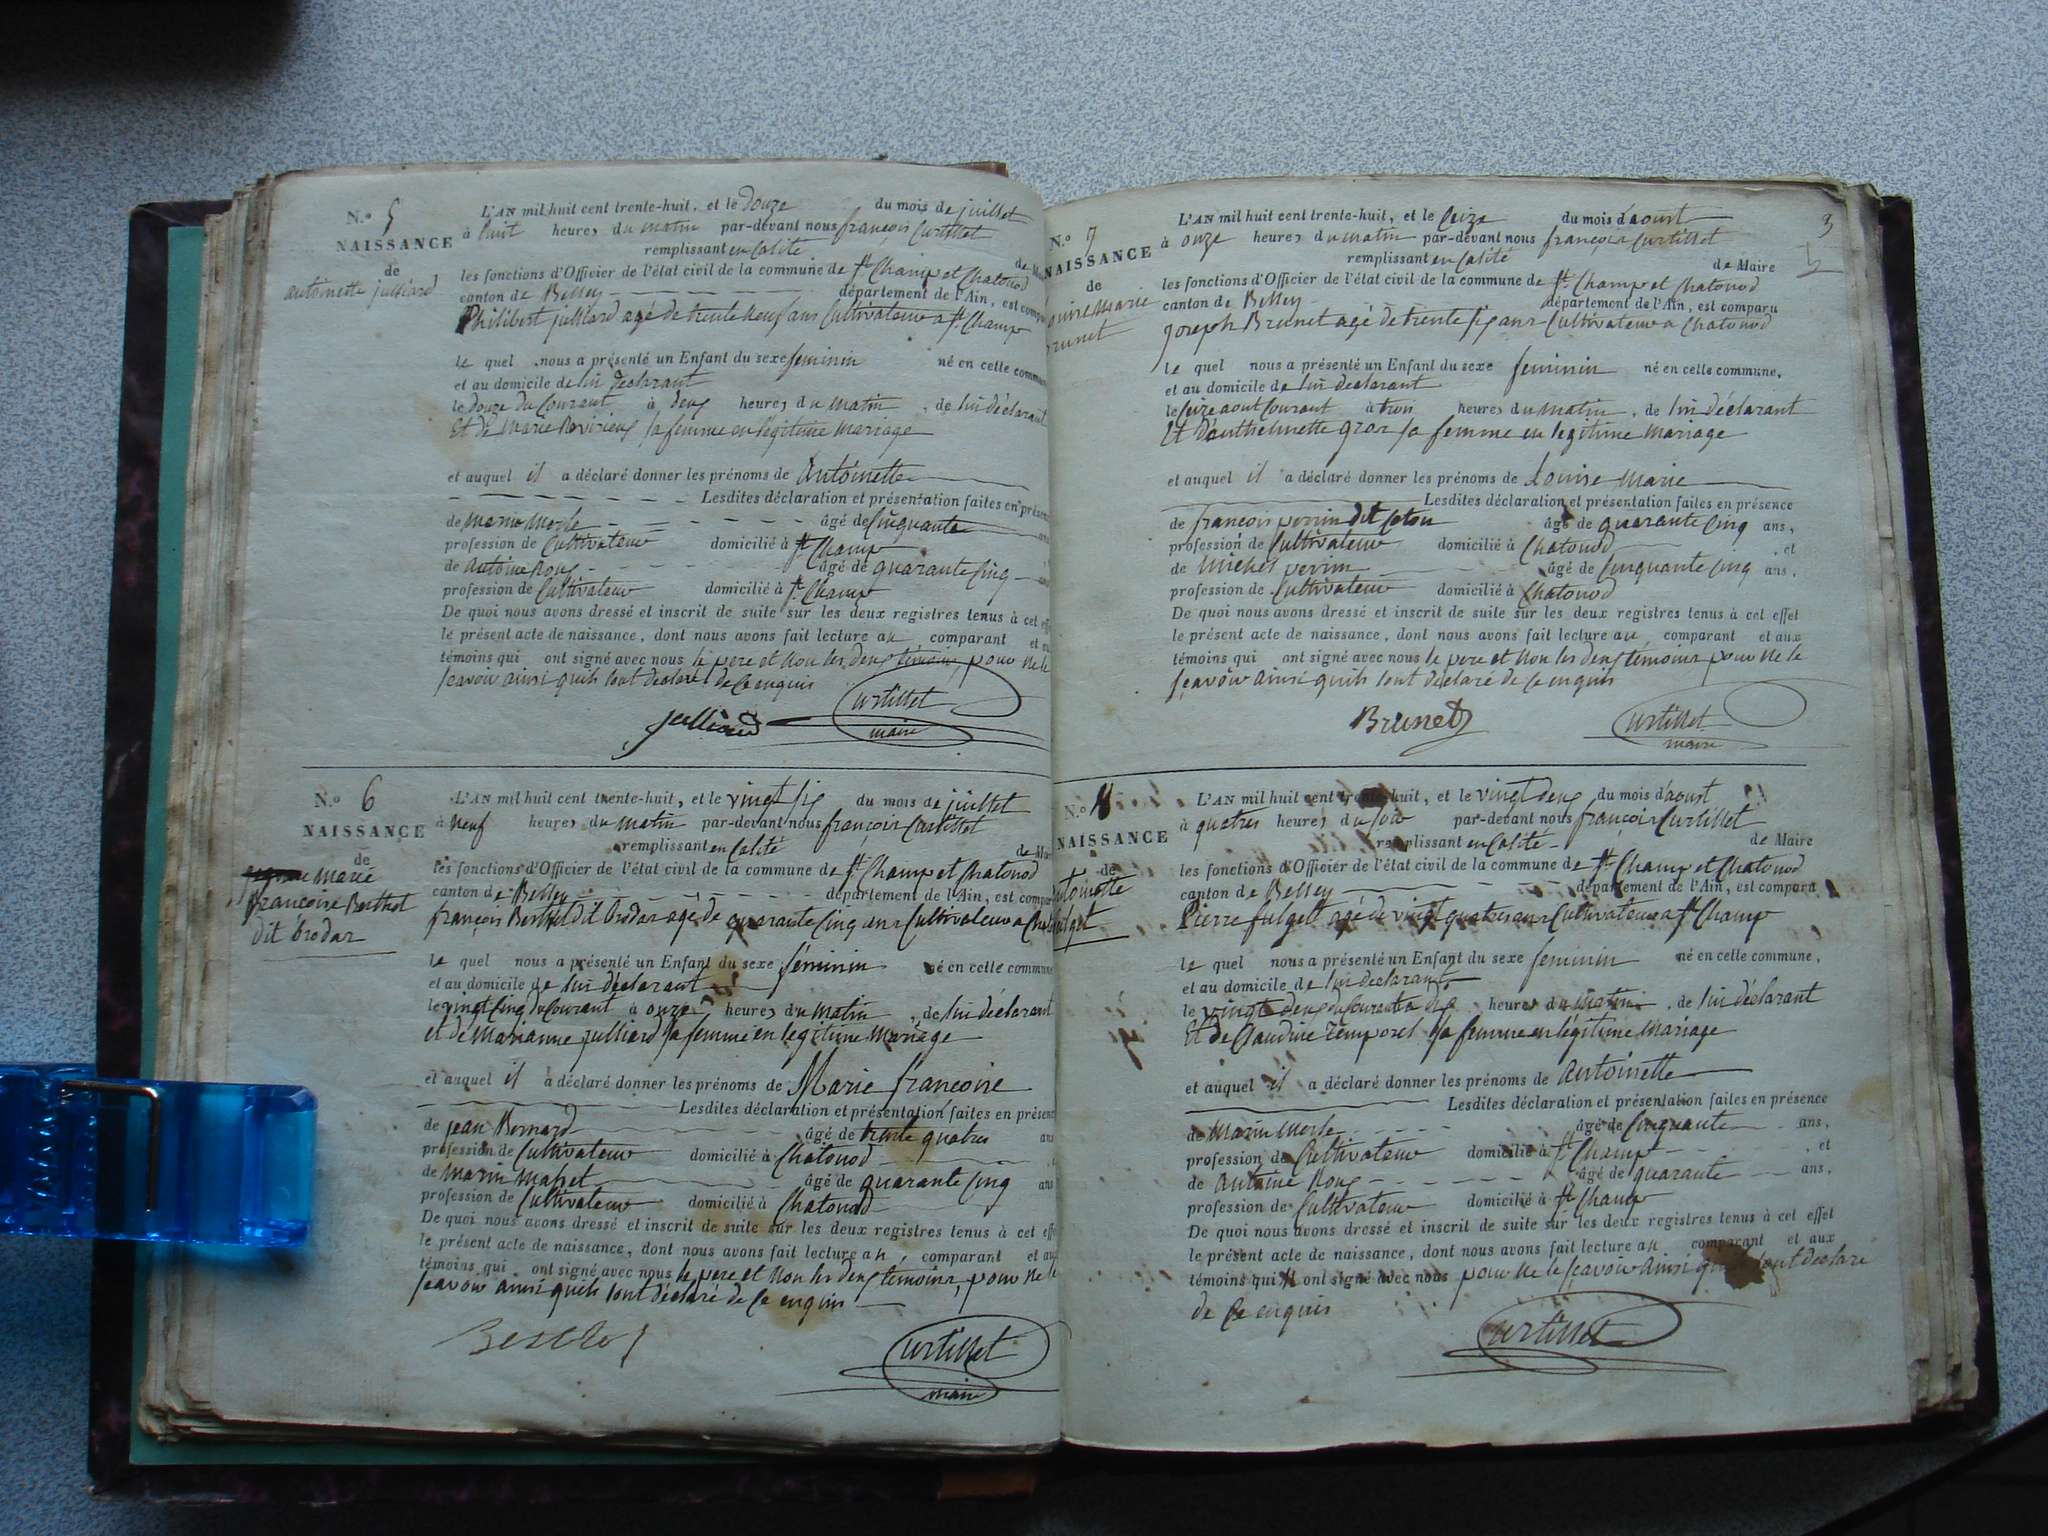 N.º 5
NAISSANCE
de
antoinette julliard
L'AN mil huit cent trente-huit, et le douze du mois de juillet
à huit heures du matin par-devant nous françois Curtillet
remplissant en Calité de Maire
les fonctions d'Officier de l'état civil de la commune de St Champ et Chatonod
canton de Belley département de l'Ain, est comparu
Philibert julliard agé de trente neuf ans Cultivateur a St Champ
le quel nous a présenté un Enfant du sexe feminin né en cette commune
et au domicile de lui declarant
le douze du Courant à deux heures du matin, de lui déclarant
Et de Marie sa femme en legitime mariage
et auquel il a déclaré donner les prénoms de antoinette
Lesdites déclaration et présentation faites en présence
de marin merle âgé de Cinquante ans
profession de Cultivateur domicilié à St Champ
de antoine Roux âgé de quarante Cinq ans
profession de Cultivateur domicilié à St Champ
De quoi nous avons dressé et inscrit de suite sur les deux registres tenus à cet effet
le présent acte de naissance, dont nous avons fait lecture au comparant et aux
témoins qui ont signé avec nous le pere et Non les deux témoins pour Ne le
scavoir ainsi quils l'ont declaré de Ce enquis
julliard Curtillet
maire
N.º 6
NAISSANCE
de
Marie
francoise Berthet
dit brodar
L'AN mil huit cent trente-huit, et le vingt six du mois de juillet
à Neuf heures du matin par-devant nous françois Curtillet
remplissant en Calité de Maire
les fonctions d'Officier de l'état civil de la commune de St Champ et Chatonod
canton de Belley département de l'Ain, est comparu
françois Berthet dit brodar agé de quarante Cinq ans Cultivateur a
le quel nous a présenté un Enfant du sexe féminin né en cette commune
et au domicile de lui déclarant
le vingt Cinq du Courant à onze heures du matin, de lui déclarant
et de Marianne julliard sa femme en legitime Mariage
et auquel il a déclaré donner les prénoms de Marie françoise
Lesdites déclaration et présentation faites en présence
de jean Bornard âgé de trente quatres ans
profession de Cultivateur domicilié à Chatonod
de marin âgé de quarante Cinq ans
profession de Cultivateur domicilié à Chatonod
De quoi nous avons dressé et inscrit de suite sur les deux registres tenus à cet effet
le présent acte de naissance, dont nous avons fait lecture au comparant et aux
témoins qui ont signé avec nous le pere et Non les deux témoins, pour Ne le
scavoir ainsi quils l'ont déclaré de Ce enquis
Curtillet
maire
3
N.º 7
NAISSANCE
de
Louise Marie
Brunet
L'AN mil huit cent trente-huit, et le Seize du mois d'aoust
à onze heures du matin par-devant nous françois Curtillet
remplissant en Calité de Maire
les fonctions d'Officier de l'état civil de la commune de St Champ et Chatonod
canton de Belley département de l'Ain, est comparu
joseph Brunet agé de trente six ans Cultivateur a Chatonod
le quel nous a présenté un Enfant du sexe feminin né en cette commune,
et au domicile de lui declarant
le Seize aout Courant à trois heures du matin, de lui déclarant
Et d'anthelmette gros sa femme en legitime Mariage
et auquel il a déclaré donner les prénoms de Louise Marie
Lesdites déclaration et présentation faites en présence
de françois perrin dit âgé de quarante Cinq ans,
profession de Cultivateur domicilié à Chatonod et
de Michel perrin âgé de Cinquante Cinq ans,
profession de Cultivateur domicilié à Chatonod
De quoi nous avons dressé et inscrit de suite sur les deux registres tenus à cet effet
le présent acte de naissance, dont nous avons fait lecture au comparant et aux
témoins qui ont signé avec nous le pere et Non les deux témoins pour Ne le
scavoir ainsi quils l'ont déclaré de Ce enquis
Brunet Curtillet
maire
N.º 8
NAISSANCE
de
antoinette
fulget
L'AN mil huit cent trente-huit, et le vingt deux du mois d'aoust
à quatres heures du soir par-devant nous françois Curtillet
remplissant en Calité de Maire
les fonctions d'Officier de l'état civil de la commune de St Champ et Chatonod
canton de Belley département de l'Ain, est comparu
Pierre fulget agé de vingt quatres ans Cultivateur a St Champ
le quel nous a présenté un Enfant du sexe feminin né en cette commune,
et au domicile de lui declarant
le vingt deux du Courent a dix heures du matin, de lui déclarant
Et de Claudine Temporel sa femme en légitime Mariage
et auquel il a déclaré donner les prénoms de antoinette
Lesdites déclaration et présentation faites en présence
de Marin Merle âgé de Cinquante ans,
profession de Cultivateur domicilié à St Champ et
de antoine Roux âgé de quarante ans,
profession de Cultivateur domicilié à St Champ
De quoi nous avons dressé et inscrit de suite sur les deux registres tenus à cet effet
le présent acte de naissance, dont nous avons fait lecture au comparant et aux
témoins qui ont signé avec nous pour Ne le scavoir ainsi l'ont declaré
de Ce enquis
Curtillet